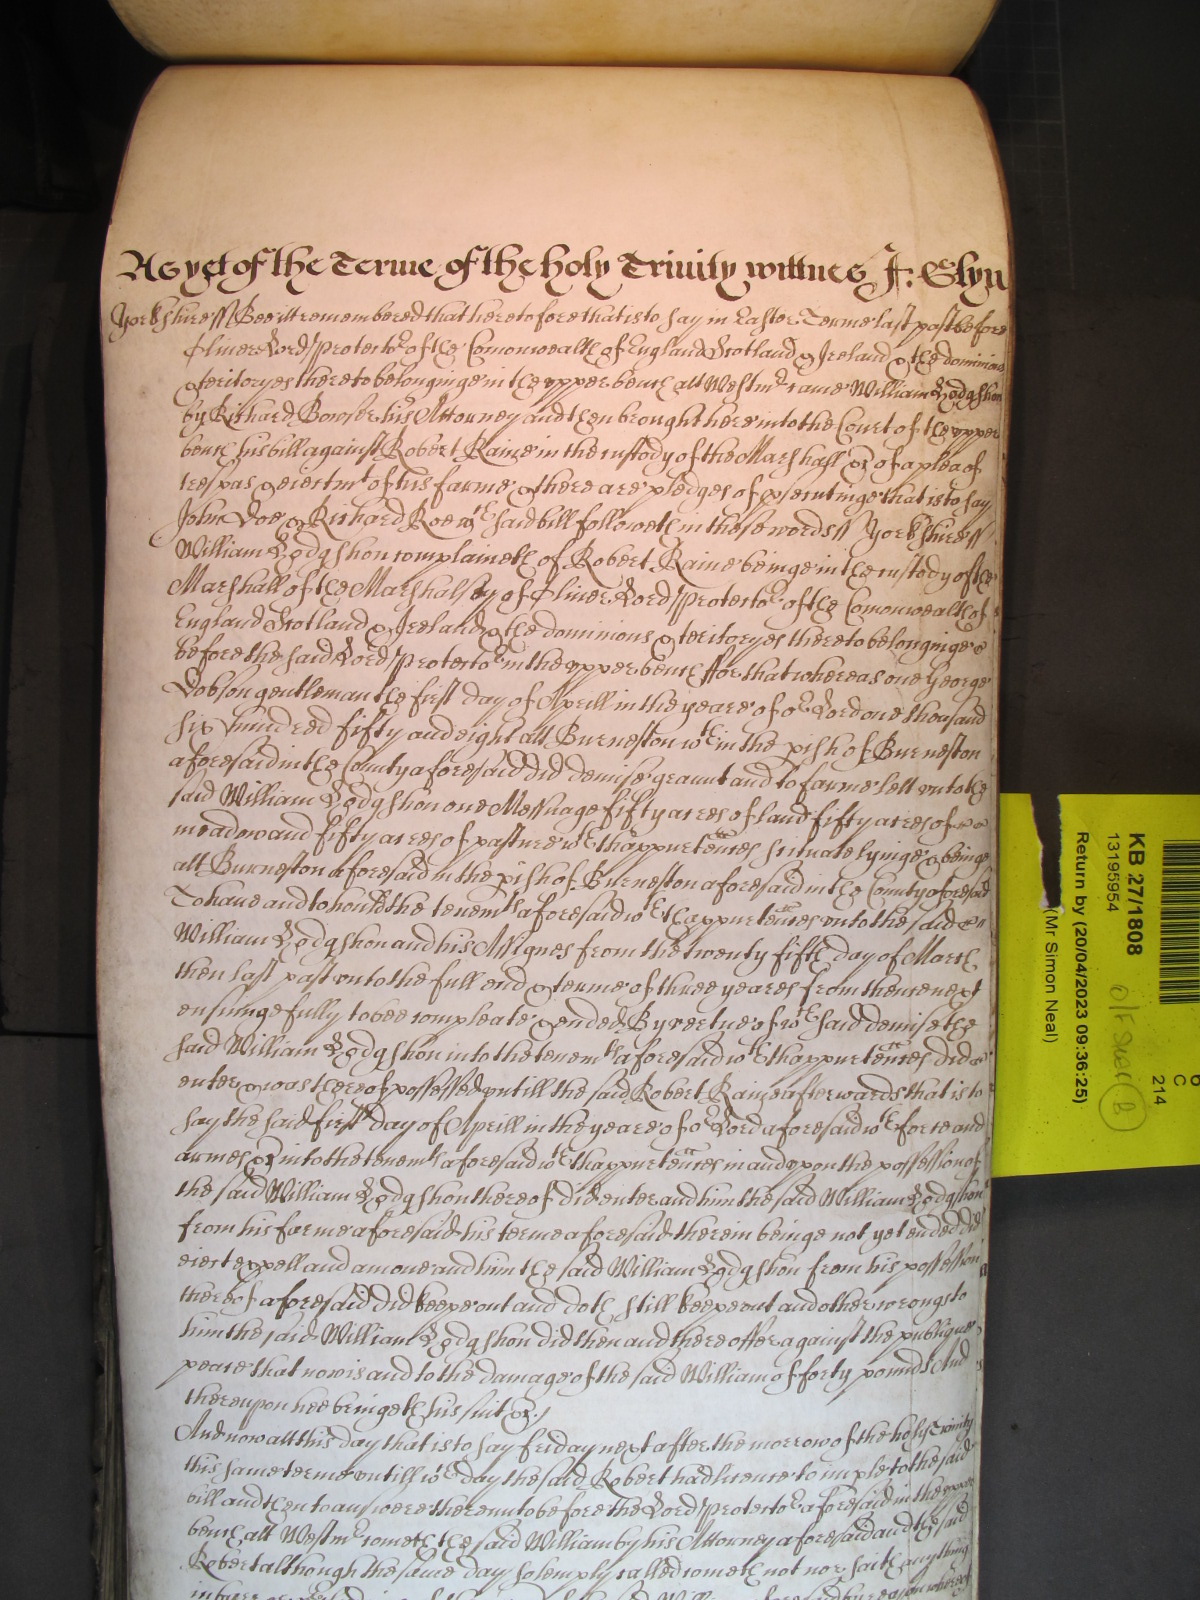 As yet of the Terme of the holy Trinity wittnes J: Glyn
Yorkshire ss Bee itt remembered that heretofore that is to say in Easter Terme last past before
Oliver Lord Protector of the Comonwealth of England Scotland & Ireland & the dominions
& teritoryes thereto belonginge in the upper bench att Westmr came William Hodgshon
by Richard Bowser his Attorney and then brought here into the Court of the upper
bench his bill against Robert Raine in the custody of the Marshall &c of a plea of
trespas & eiectmt of his farme & there are pledges of psecutinge that is to say
John Doe & Richard Roe wch said bill followeth in these words ss Yorkshire ss
William Hodgshon complaineth of Robert Raine beinge in the custody of the
Marshall of the Marshalsey of Oliver Lord Protector of the Comonwealth of
England Scotland & Ireland & the dominions & teritoryes thereto belonginge
before the said Lord Protector in the upper bench ffor that whereas one George
Dobson gentleman the first day of Aprill in the yeare of or Lord one thousand
six hundred fifty and eight att Burneston wthin the pish of Burneston
aforesaid in the County aforesaid did demise graunt and to farme lett unto the
said William Hodgshon one Messuage fifty acres of land fifty acres of
meadow and fifty acres of pasture wth thappurtences scituate lyinge & beinge
att Burneston aforesaid in the pish of Burneston aforesaid in the County aforesaid
To have and to hould the tenemts aforesaid wth thappurtences unto the said
William Hodgshon and his Assignes from the twenty fifth day of March
then last past unto the full end & terme of three yeares from thence next
ensuinge fully to bee compleate & ended By vertue of wch said demise the
said William Hodgshon into the tenemts aforesaid wth thappurtences did
enter & was thereof possessed untill the said Robert Raine afterwards that is to
say the said first day of Aprill in the yeare of or Lord aforesaid wth force and
armes &c into the tenemts aforesaid wth thappurtences in and upon the possession of
the said William Hodgshon thereof did enter and him the said William Hodgshon
from his farme aforesaid his terme aforesaid therein beinge not yet ended did
eiect expell and amove and him the said William Hodgshon from his possession
thereof aforesaid did keepe out and doth still keepe out and other wrongs to
him the said William Hodgshon did then and there offer against the publique
peace that now is and to the damage of the said William of forty pounds And
thereupon hee bringeth his suit &c
And now att this day that is to say friday next after the morrow of the holy Trinity
this same terme untill wch day the said Robert had licence to imple to the said
bill and then to answere thereunto before the Lord Protector aforesaid in the upper
bench att Westmr cometh the said William by his Attorney aforesaid and the said
Robert although the same day solemply called cometh not nor saith anything
KB 27/1808
13195954
(Mr Simon Neal)
Return by (20/04/2023 09:36:25)
6
C
214
B